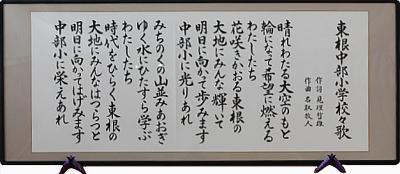 東根中部小学校々歌
作詞 見理哲雄
作曲 名取牧人
晴れわたる大空のもと
輪になって希望に燃える
わたしたち
花咲きかおる東根の
大地にみんな輝いて
明日に向かって歩みます
中部小に光りあれ
みちのくの山並みあおぎ
ゆく水にひたすら学ぶ
わたしたち
時代をひらく東根の
大地にみんなはつらつと
明日に向かってはげみます
中部小に栄えあれ